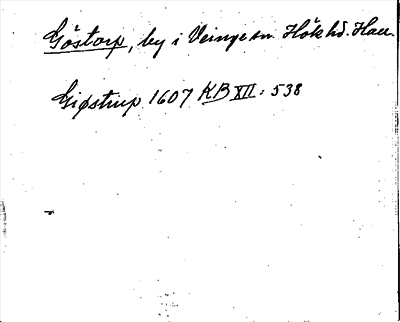 Göstorp, by i Veinge sn Hök hd. Hall.
Giøstrup 1607 KB XII: 538